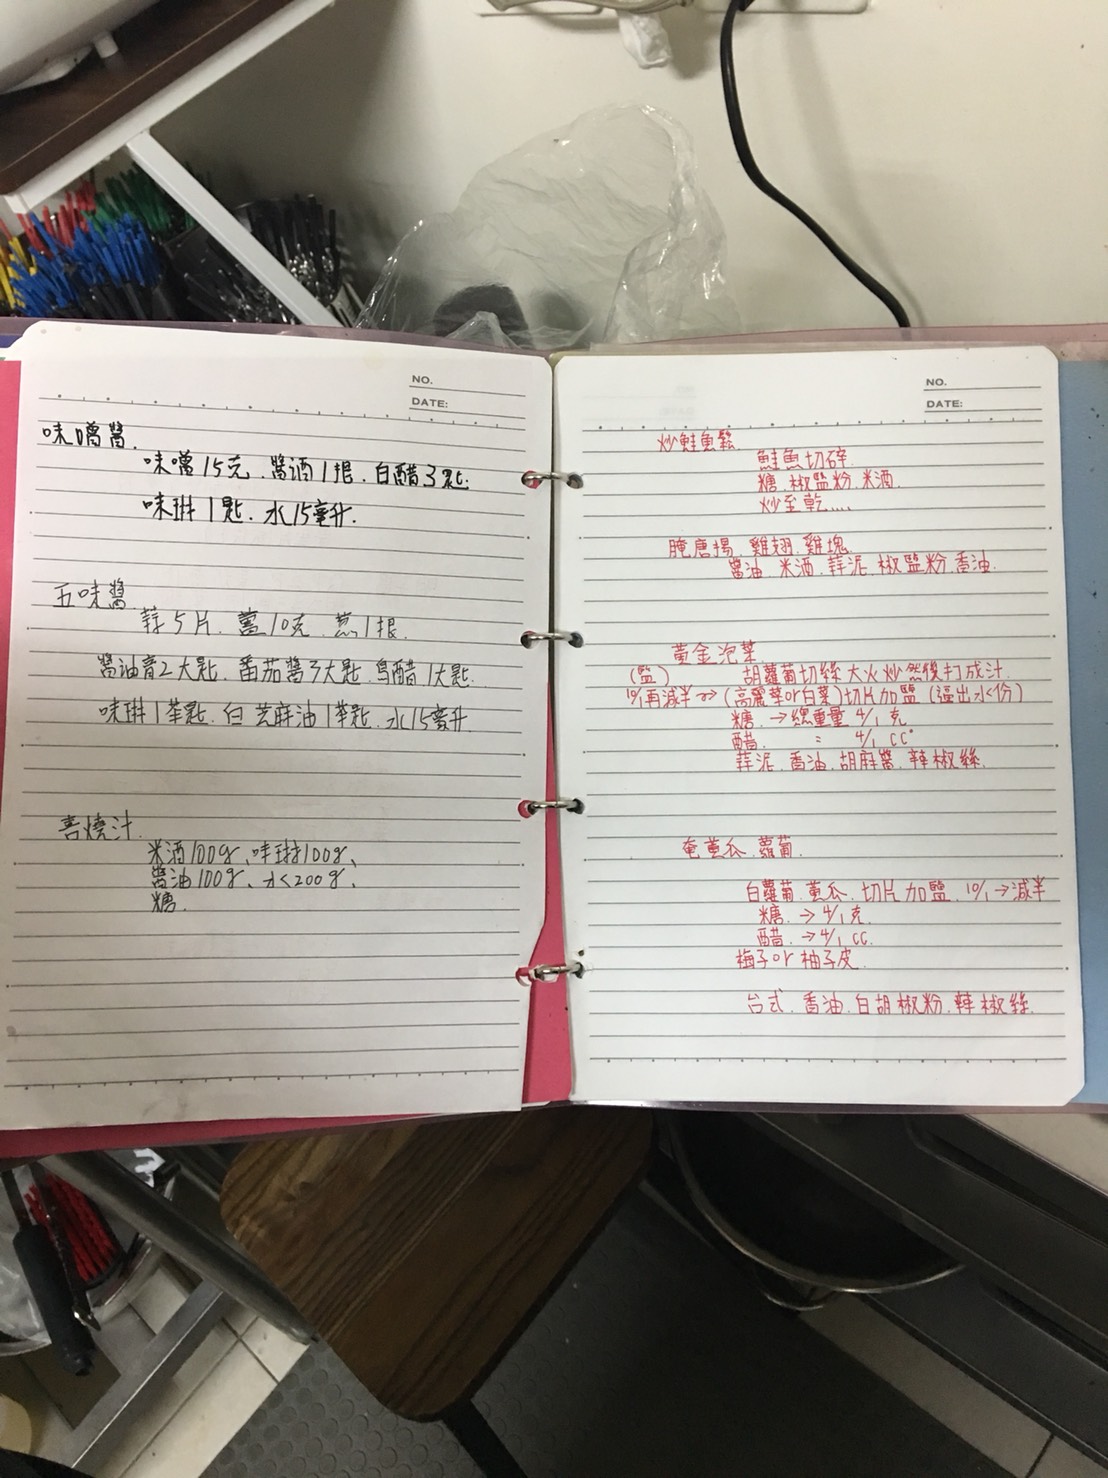 NO.
DATE:
味噌醬.
味噌15克.醬酒1根.白醋3匙.
味琳1匙.水15毫升.
五味醬
蒜5片.薑10克.蔥1根.
醬油膏2大匙.番茄醬3大匙.烏醋1大匙.
味琳1茶匙.白芝麻油1茶匙.水15毫升
燒汁.
米酒100g、味琳100g、
醬油100g、水200g、
糖.
NO.
DATE:
炒鮭魚鬆
鮭魚切碎
糖.椒鹽粉.米酒.
炒至乾....
腌唐揚.雞翅.雞塊.
醬油.米酒.蒜泥.椒鹽粉.香油.
黃金泡菜.
(監) 胡蘿蔔切絲大火炒然後打成汁.
10/1再減半→(高麗菜or白菜)切片加鹽(逼出水份)
糖.→總重量4/1克
醋. = 4/1 cc.
蒜泥.香油.胡麻醬.辣椒絲.
奄黃瓜.蘿蔔.
白蘿蔔.黃瓜.切片加鹽.10/1→減半
糖.→4/1克.
醋.→4/1 cc.
梅子or柚子皮.
台式.香油.白胡椒粉.辣椒絲.